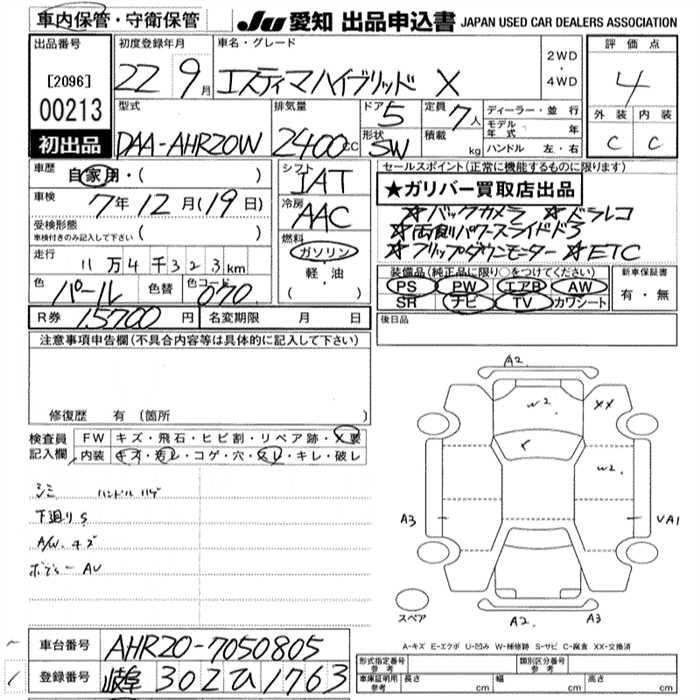 車内保管・守衛保管
JU 愛知 出品申込書 JAPAN USED CAR DEALERS ASSOCIATION
出品番号 初度登録年月 車名・グレード 2WD・4WD 評価点
[2096] 22 9月 エスティマハイブリッド X 4
00213 型式 排気量 ドア 5 定員 7人 ディーラー・並行 外装 内装
初出品 DAA-AHR20W 2400cc 形状 SW 積載 kg モデル年式 年 C C
ハンドル 左・右
車歴 自家用・( ) シフト IAT セールスポイント(正常に機能するものに限ります)
★ガリバー買取店出品
車検 7年12月(19日) 冷房 AAC ☆バックカメラ ☆ドラレコ
受検形態 車検付きのみ記入して下さい ( ) 燃料 ☆両側パワースライドドア
走行 11万4千323km ガソリン・軽・油 ☆フリップダウンモニター ☆ETC
色 パール 色替 色コード 070 ( ) 装備品(純正品に限り○をつけてください) 新車保証書
PS PW エアB AW 有・無
SR ナビ TV カワシート
R券 15700円 名変期限 月 日 後日品
注意事項申告欄(不具合内容等は具体的に記入して下さい)
修復歴 有 (箇所 )
検査員記入欄 FW キズ・飛石・ヒビ割・リペア跡・X要
内装 キズ・汚レ・コゲ・穴・スレ・キレ・破レ
シミ ハンドル ハゲ
下廻り S
A/W キズ
ボデー AU
A2
W2 XX
W2
A3 UA1
スペア
A2 A3
A-キズ E-エクボ U-凹み W-補修跡 S-サビ C-腐食 XX-交換済
車台番号 AHR20-7050805 形式指定番号 参考 類別区分番号 参考
登録番号 岐阜 302 ひ 1763 車庫証明用 参考 長さ cm 幅 cm 高さ cm